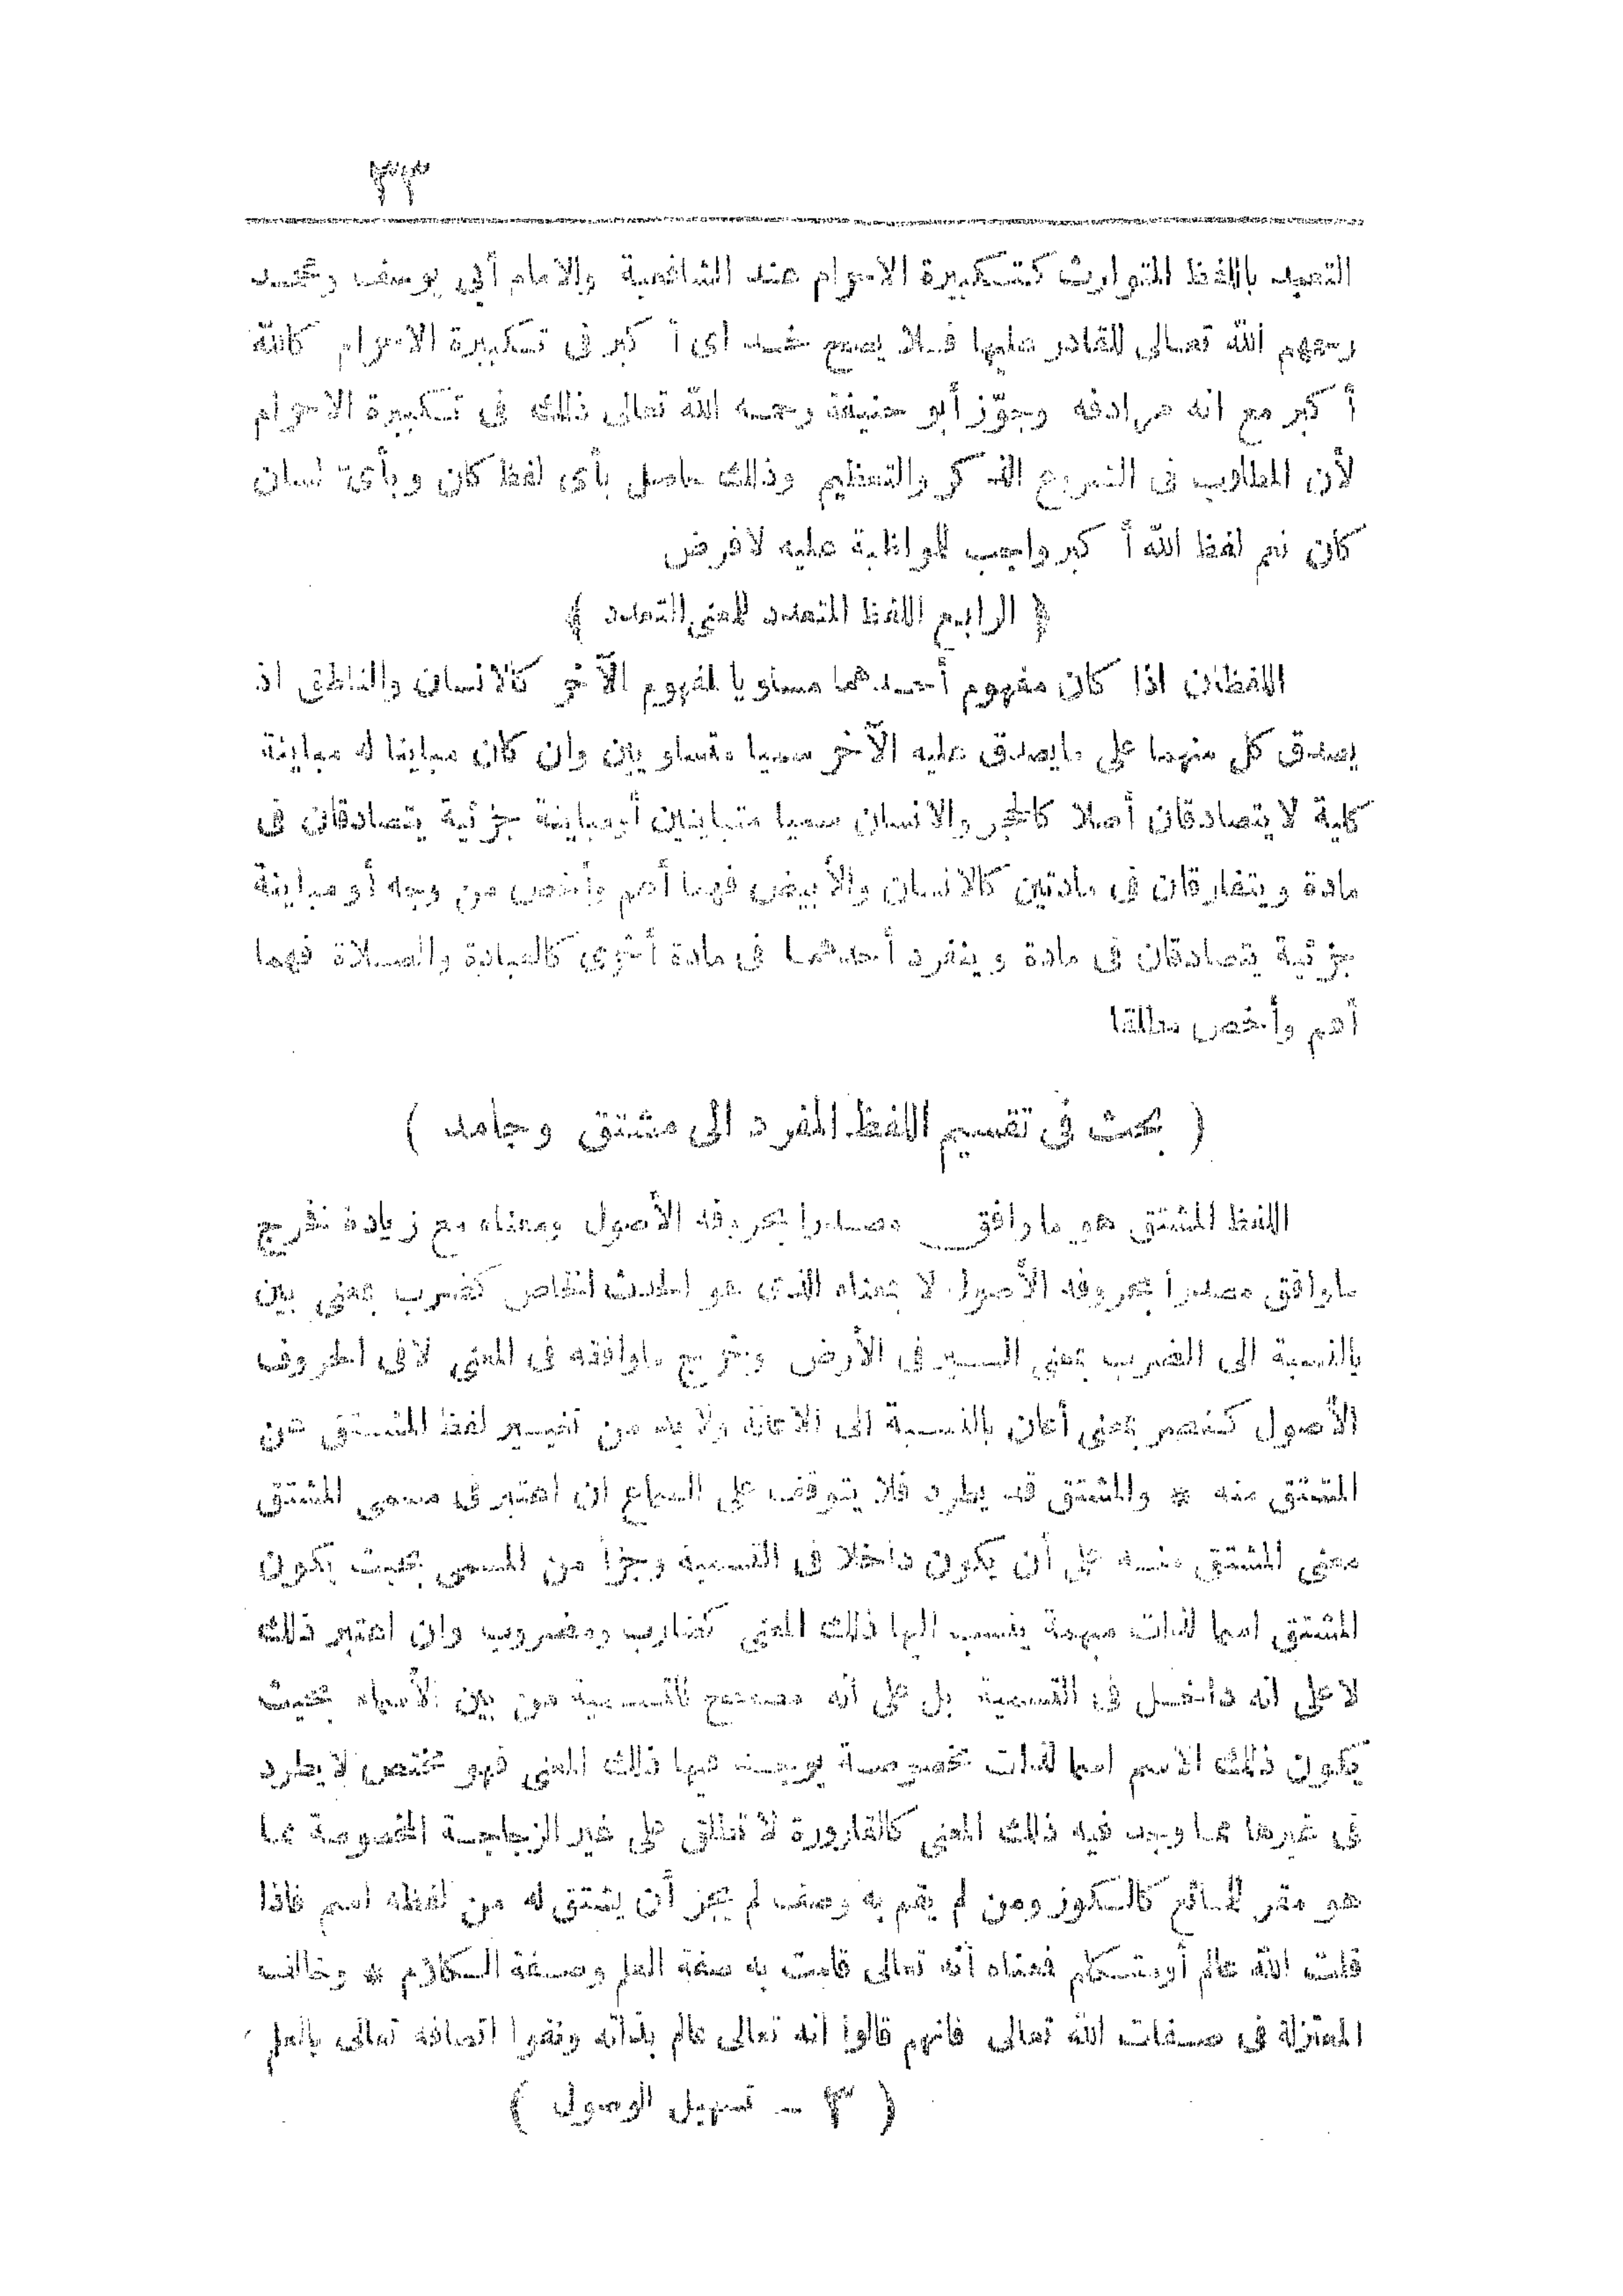 ٣٣
التعبد باللفظ المتوارث كتكبيرة الاحرام عند الشافعية والامام أبى يوسف ومحمد
رحمهم الله تعالى للقادر عليها فلا يصح خداى أكبر فى تكبيرة الاحرام كالله
أكبر مع انه مرادفه وجوّز أبو حنيفة رحمه الله تعالى ذلك فى تكبيرة الاحرام
لأن المطلوب فى الشروع الذكر والتعظيم وذلك حاصل بأى لفظ كان وبأى لسان
كان نعم لفظ الله أكبر واجب للمواظبة عليه لا فرض
﴿ الرابع اللفظ المتعدد للمعنى المتعدد ﴾
اللفظان اذا كان مفهوم أحدهما مساويا لمفهوم الآخر كالانسان والناطق اذ
يصدق كل منهما على ما يصدق عليه الآخر سميا متساويين وان كان مباينا له مباينة
كلية لا يتصادقان أصلا كالحجر والانسان سميا متباينين أو مباينة جزئية يتصادقان فى
مادة ويتفارقان فى مادتين كالانسان والأبيض فهما أعم وأخص من وجه أو مباينة
جزئية يتصادقان فى مادة وينفرد أحدهما فى مادة أخرى كالعبادة والصلاة فهما
أعم وأخص مطلقا
( بحث فى تقسيم اللفظ المفرد الى مشتق وجامد )
اللفظ المشتق هو ما وافق مصدرا بحروفه الأصول ومعناه مع زيادة نخرج
ما وافق مصدرا بحروفه الأصول لا بمعناه الذى هو الحدث الخاص كضرب بمعنى بين
بالنسبة الى الضرب بمعنى السير فى الأرض وخرج ما وافقه فى المعنى لا فى الحروف
الأصول كنصر بمعنى أعان بالنسبة الى الاعانة ولا بد من تغيير لفظ المشتق عن
المشتق منه * والمشتق قد يطرد فلا يتوقف على السماع ان اعتبر فى مسمى المشتق
معنى المشتق منه على أن يكون داخلا فى التسمية وجزأ من المسمى بحيث يكون
المشتق اسما لذات مبهمة ينسب اليها ذلك المعنى كضارب ومضروب وان اعتبر ذلك
لا على انه داخل فى التسمية بل على أنه مصحح للتسمية من بين الأسماء بحيث
يكون ذلك الاسم اسما لذات مخصوصة يوجد فيها ذلك المعنى فهو مختص لا يطرد
فى غيرها مما وجد فيه ذلك المعنى كالقارورة لا تطلق على غير الزجاجة المخصوصة مما
هو مقر للمائع كالكوز ومن لم يقم به وصف لم يجز أن يشتق له من لفظه اسم فاذا
قلت الله عالم أو متكلم فمعناه أنه تعالى قامت به صفة العلم وصفة الكلام * وخالف
المعتزلة فى صفات الله تعالى فانهم قالوا انه تعالى عالم بذاته ونفوا اتصافه تعالى بالعلم
( ٣ - تسهيل الوصول )